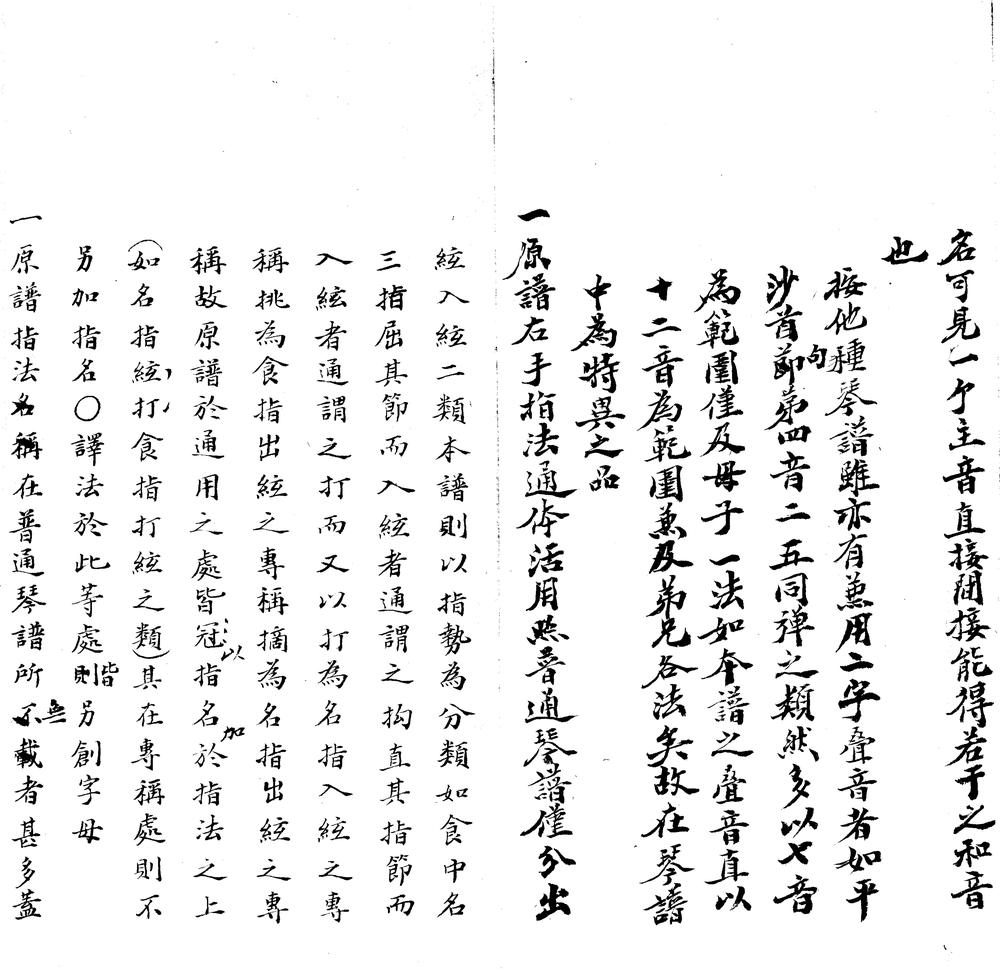 名可見一个主音直接間接能得若干之和音
也
按他種琴譜雖亦有兼用二字疊音者如平
沙首節句第四音二五同彈之類然多以七音
為範圍僅及母子一法如本譜之疊音直以
十二音為範圍兼及弟兄各法矣故在琴譜
中為特異之品
一原譜右手指法通体活用照普通琴譜僅分出
絃入絃二類本譜則以指勢為分類如食中名
三指屈其節而入絃者通謂之抅直其指節而
入絃者通謂之打而又以打為名指入絃之專
稱挑為食指出絃之專稱摘為名指出絃之專
稱故原譜於通用之處皆冠以指名加於指法之上
(如名指絃打食指打絃之類)其在專稱處則不
另加指名〇譯法於此等處則皆另創字母
一原譜指法名稱在普通琴譜所無不載者甚多蓋